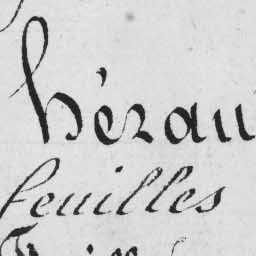 hérau
feuilles